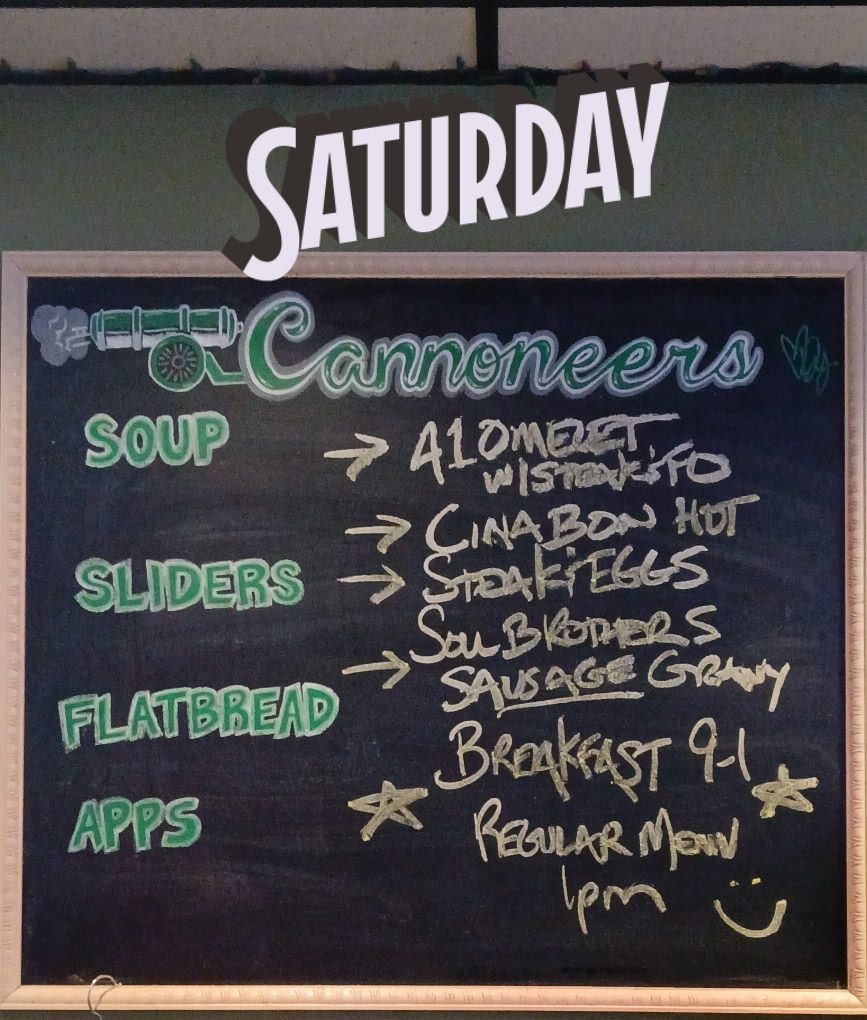 SATURDAY
Cannoneers
SOUP
→ A1 OMELET
W/STEAK & TO
→ CINABON HOT
SLIDERS
→ STEAK & EGGS
Sou BROTHERS
→ SAUSAGE GRAVY
FLATBREAD
BREAKFAST 9-1
APPS
REGULAR MENU
1pm